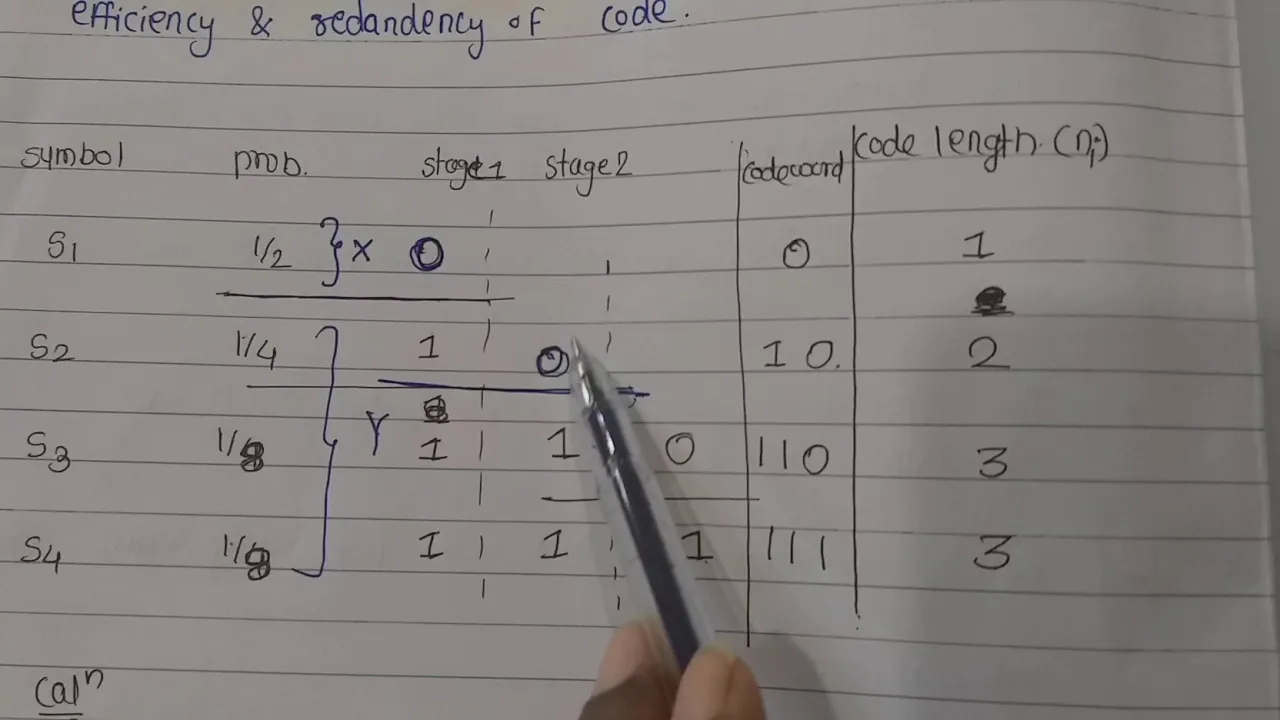 efficiency & redandency of code.
symbol prob. stage1 stage2 codeword code length. (ni)
S1 1/2 } X 0 0 1
S2 1/4 1 0 10. 2
Y
S3 1/8 1 1 0 110 3
S4 1/8 1 1 1 111 3
caln